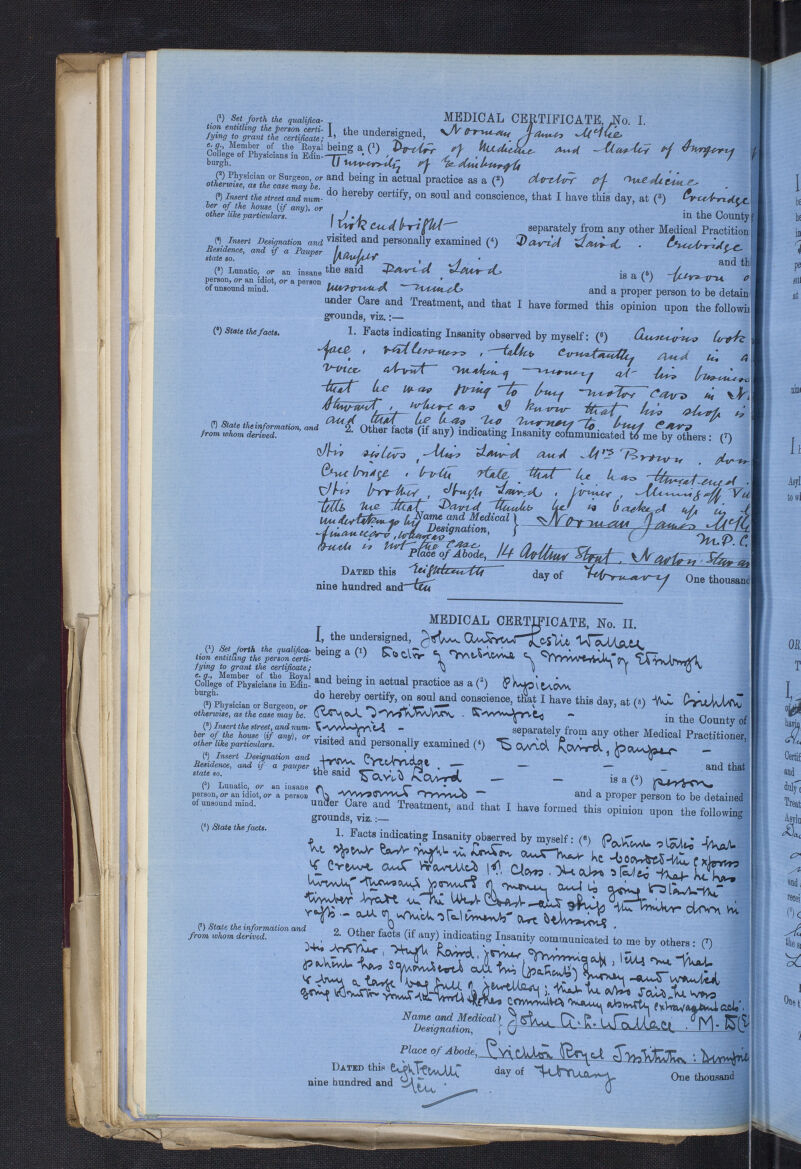 MEDICAL CERTIFICATE, No. I.
(1) Set forth the qualifica-
tion entitling the person certi-
fying to grant the certificate;
e. g., Member of the Royal
College of Physicians in Edin-
burgh.
I, the undersigned, Norman James McKie
being a (1) Doctor of Medicine and Master of Surgery
University of Edinburgh
(2) Physician or Surgeon, or
otherwise, as the case may be.
and being in actual practice as a (2) doctor of medicine
(3) Insert the street and num-
ber of the house (if any), or
other like particulars.
do hereby certify, on soul and conscience, that I have this day, at (3) Creebridge
in the County
Kirkcudbright separately from any other Medical Practition
(4) Insert Designation and
Residence, and if a Pauper
state so.
visited and personally examined (4) David Laird. Creebridge
pauper and th
(5) Lunatic, or an insane
person, or an idiot, or a person
of unsound mind.
the said David Laird is a (5) person o
unsound mind and a proper person to be detain
under Care and Treatment, and that I have formed this opinion upon the followin
grounds, viz.:—
(6) State the facts.
1. Facts indicating Insanity observed by myself: (6) Anxious look
face, restlessness, talks constantly and in a
voice about making money at his business
that he was going to buy motor cars in N.
Stewart, whereas I know that his shop is
and that he has no money to buy cars
(7) State the information, and
from whom derived.
2. Other facts (if any) indicating Insanity communicated to me by others: (7)
His sisters, Miss Laird and Mrs Brown.
Creebridge, both state that he has threatened.
His brother, Hugh Laird, joiner, Minnigaff
tells me that David thinks he is backed up in
undertakings by
financiers, whereas
such is not the case
Name and Medical
Designation,
Norman James McKie
M.P.C.
Place of Abode, 14 Arthur Street, Newton Stewar
DATED this Eighteenth day of February One thousand
nine hundred and ten
MEDICAL CERTIFICATE, No. II.
I, the undersigned, John Andrew Leslie Wallace
(1) Set forth the qualifica-
tion entitling the person certi-
fying to grant the certificate;
e. g., Member of the Royal
College of Physicians in Edin-
burgh.
being a (1) Doctor of Medicine of University of Edinburgh
and being in actual practice as a (2) Physician
(2) Physician or Surgeon, or
otherwise, as the case may be.
do hereby certify, on soul and conscience, that I have this day, at (3) the Crichton
Royal Institution. Dumfries - in the County of
(3) Insert the street, and num-
ber of the house (if any), or
other like particulars.
Dumfries - separately from any other Medical Practitioner,
visited and personally examined (4) David Laird, pauper -
(4) Insert Designation and
Residence, and if a pauper
state so.
from Creebridge. - - - and that
the said David Laird - - is a (5) person
(5) Lunatic, or an insane
person, or an idiot, or a person
of unsound mind.
of unsound mind - and a proper person to be detained
under Care and Treatment, and that I have formed this opinion upon the following
grounds, viz.:—
(6) State the facts.
1. Facts indicating Insanity observed by myself: (6) Patient states that
he spent last night in London and that he boarded the express
at Crewe and travelled 1st Class. He also states that he has
twenty thousand pounds of money and is going to start the
timber trade in the West Coast and ship the timber down in
rafts - all of which statements are delusions.
(7) State the information and
from whom derived.
2. Other facts (if any) indicating Insanity communicated to me by others: (7)
His brother, Hugh Laird, joiner Minnigaff, tells me that
patient has squandered all his (patient's) money and wanted
to buy a large bag full of jewellery; that he also said he was
going to motor round the world & has committed many absurdly extravagant acts.
Name and Medical
Designation,
John A. L. Wallace. M. D (E
Place of Abode, Crichton Royal Institution: Dumfrie
DATED this eighteenth day of February One thousand
nine hundred and ten.